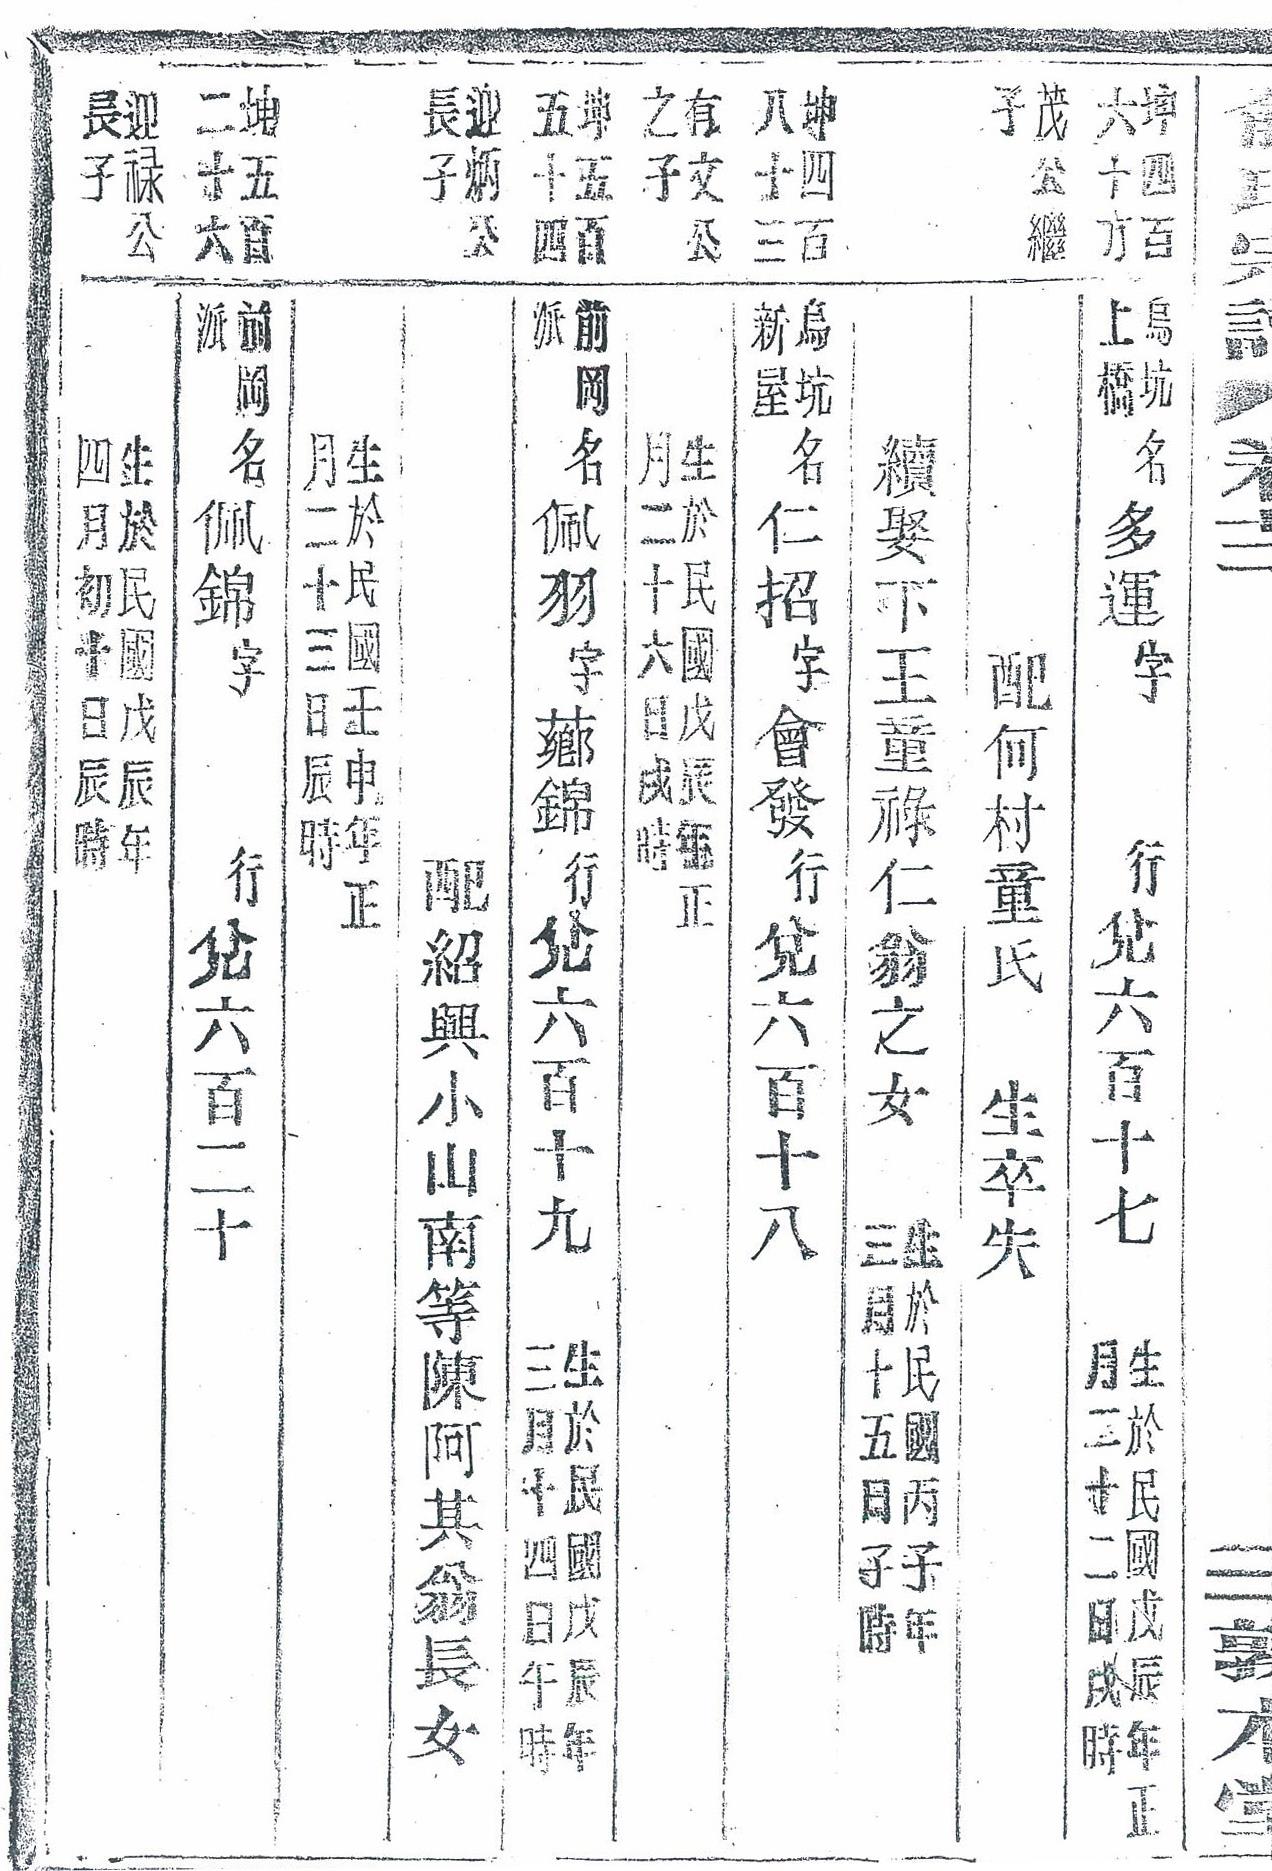 俞氏宗譜 卷三 敦本堂
坤四百六十方
烏坑上橋 名多運字 行兌六百十七 生於民國戊辰年正月二十二日戌時
茂公繼子
配何村童氏 生卒失
續娶下王童祿仁翁之女 生於民國丙子年三月十五日子時
坤四百八十三
烏坑新屋 名仁招字會發行兌六百十八
有文公之子
生於民國戊辰年正月二十六日戌時
坤五百五十四
前岡派 名佩羽字薌錦行兌六百十九 生於民國戊辰年三月十四日午時
迎炳公長子
配紹興小山南等陳阿其翁長女
生於民國壬申年正月二十三日辰時
坤五百二十六
前岡派 名佩錦字 行兌六百二十
迎祿公長子
生於民國戊辰年四月初十日辰時